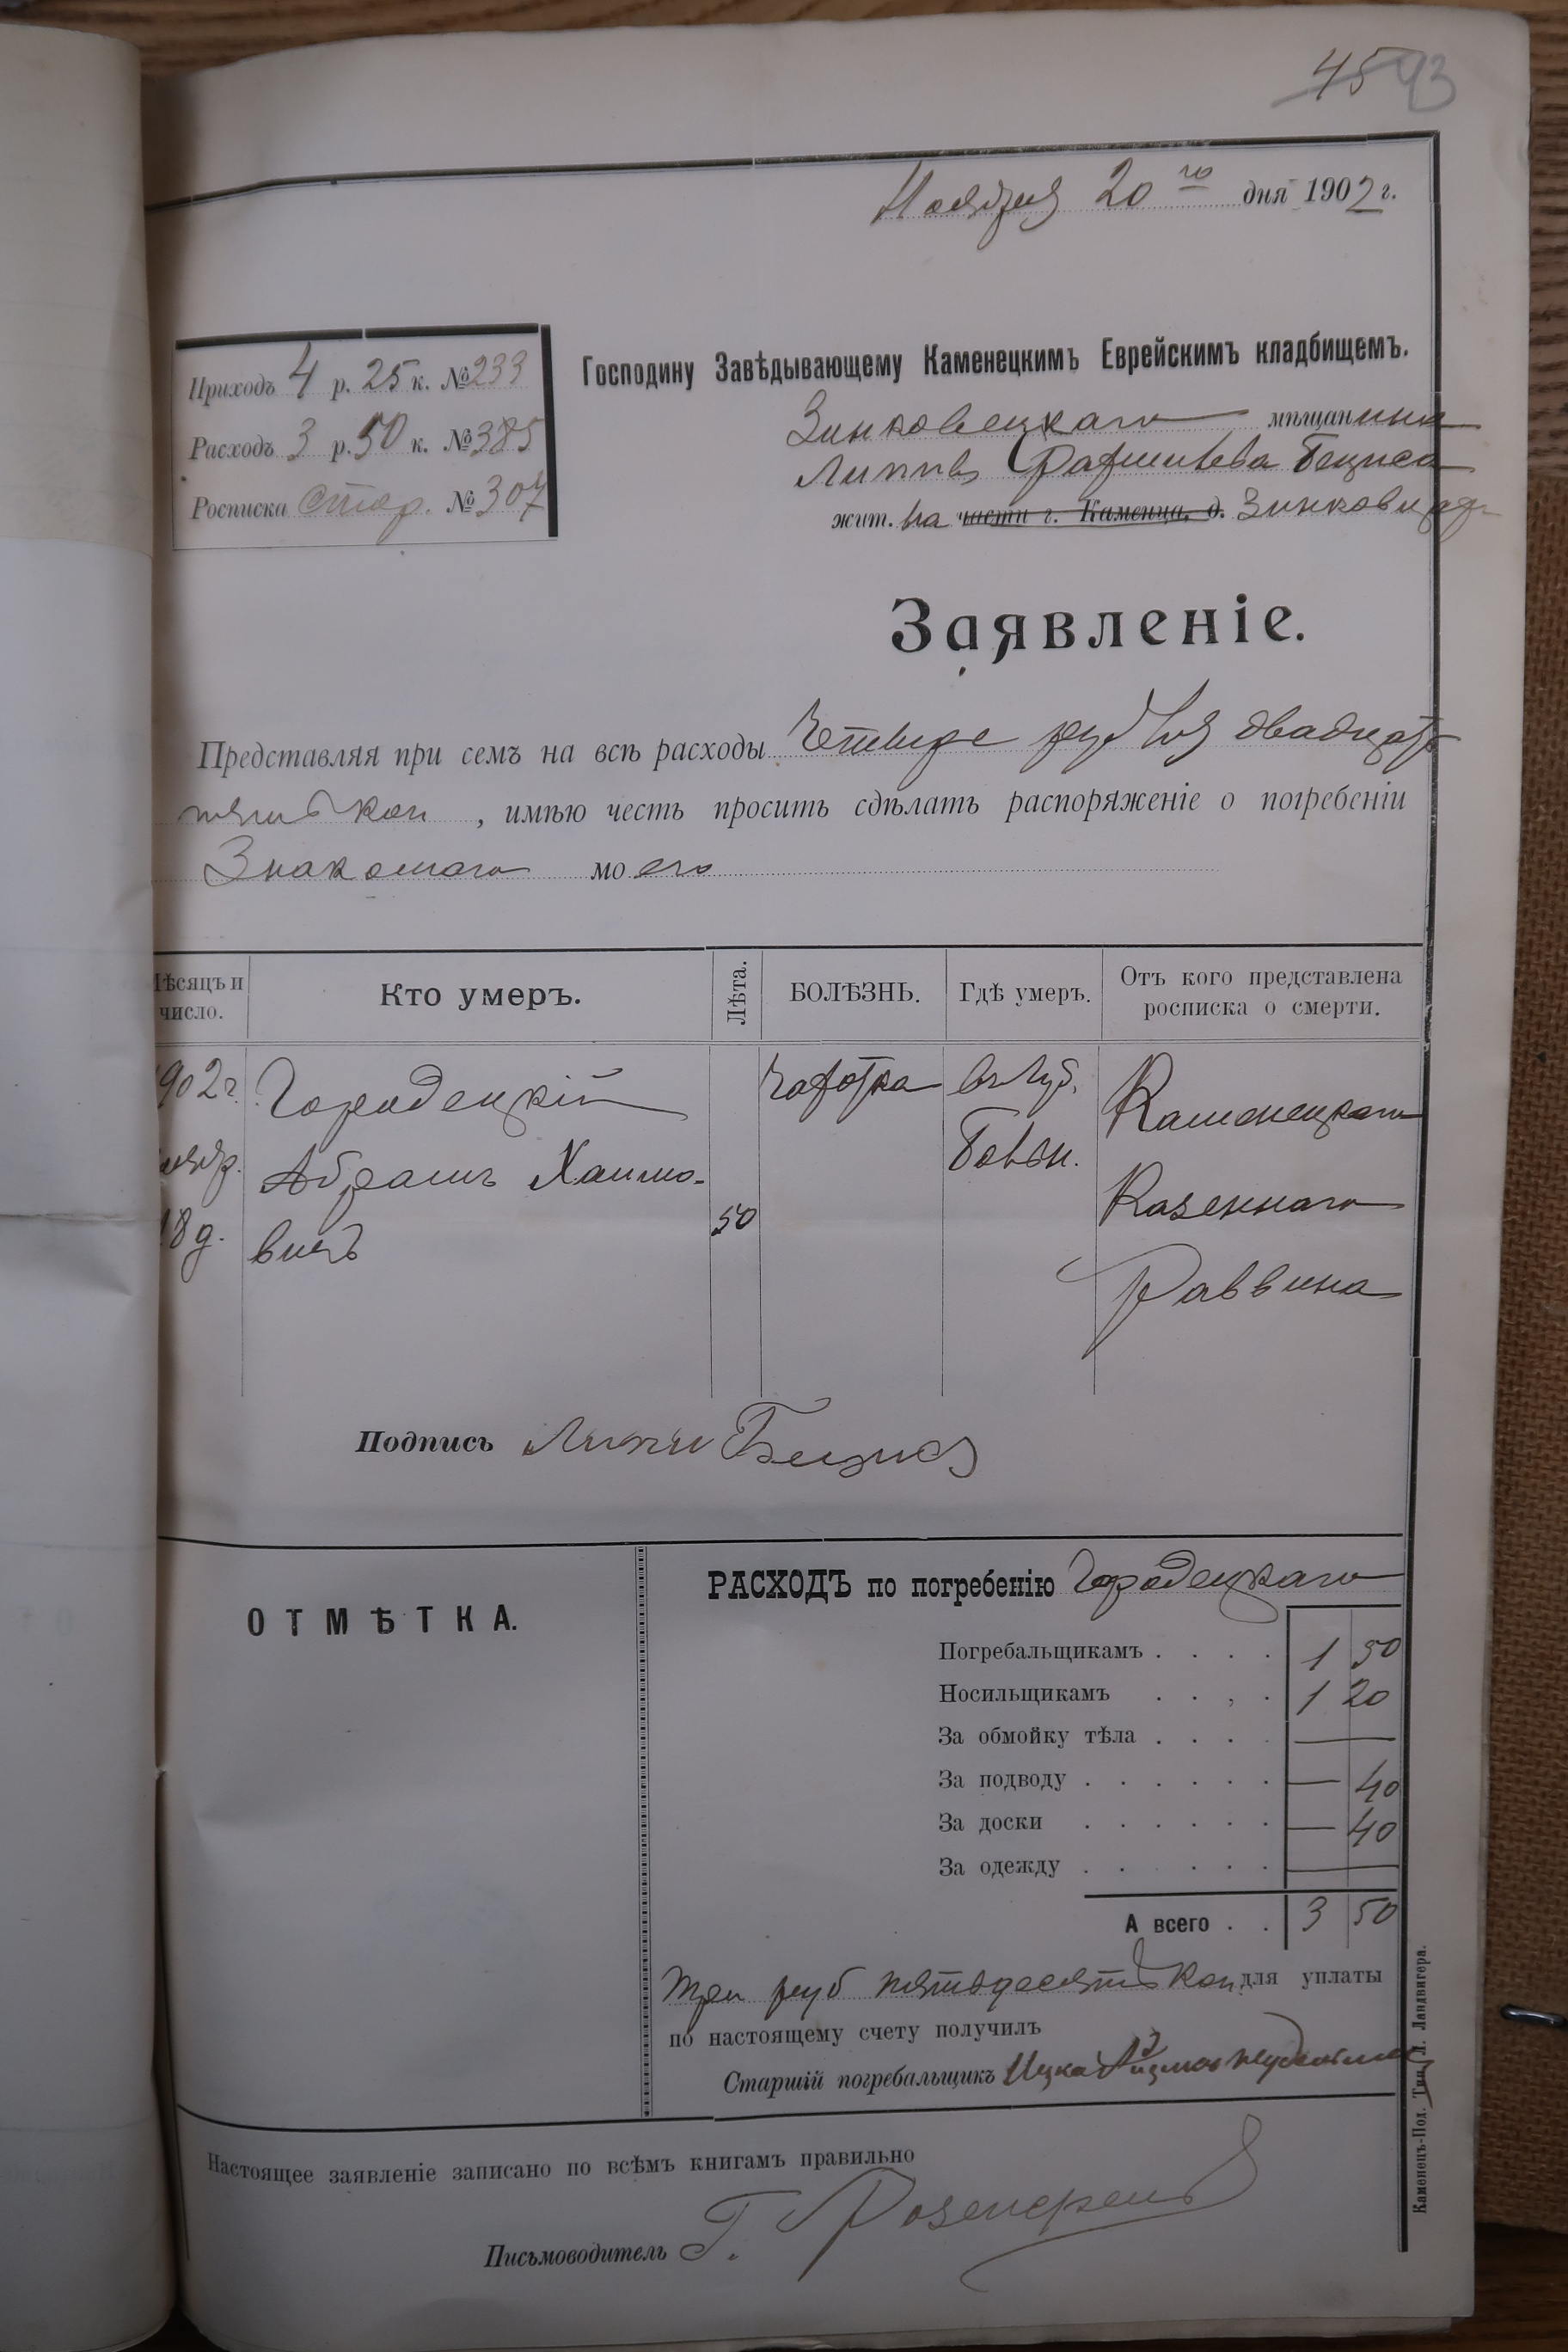 45 93
Ноября 20го дня 1902 г.
Приходъ 4 р. 25 к. № 233
Расходъ 3 р. 50 к. № 385
Росписка стор. № 307
Господину Завѣдывающему Каменецкимъ Еврейскимъ кладбищемъ.
Зинковецкаго мѣщанина
жит. на части г. Каменца, д. Зинковцахъ
Заявленіе.
Представляя при семъ на всѣ расходы Четыре рубля двадцать
пять коп , имѣю честь просить сдѣлать распоряженіе о погребеніи
Знакомаго моего
Мѣсяцъ и число.
Кто умеръ.
Лѣта.
БОЛѢЗНЬ.
Гдѣ умеръ.
Отъ кого представлена росписка о смерти.
1902 г.
ноябр.
18 д.
Городецкій
Абрамъ Хаимо-
вичъ
50
Чахотка
въ Губ.
Больн.
Каменецкаго
Казеннаго
Раввина
Подпись
ОТМѢТКА.
РАСХОДЪ по погребенію Городецкаго
Погребальщикамъ . . . . 1 50
Носильщикамъ . . , . 1 20
За обмойку тѣла . . . . —
За подводу . . . . . . — 40
За доски . . . . . . — 40
За одежду . . . . . . —
А всего . . 3 50
Три руб пятьдесятъ коп для уплаты
по настоящему счету получилъ
Старшій погребальщикъ Ицка
Настоящее заявленіе записано по всѣмъ книгамъ правильно
Письмоводитель Г.
Каменецъ-Под. Тип. Л. Ландвигера.